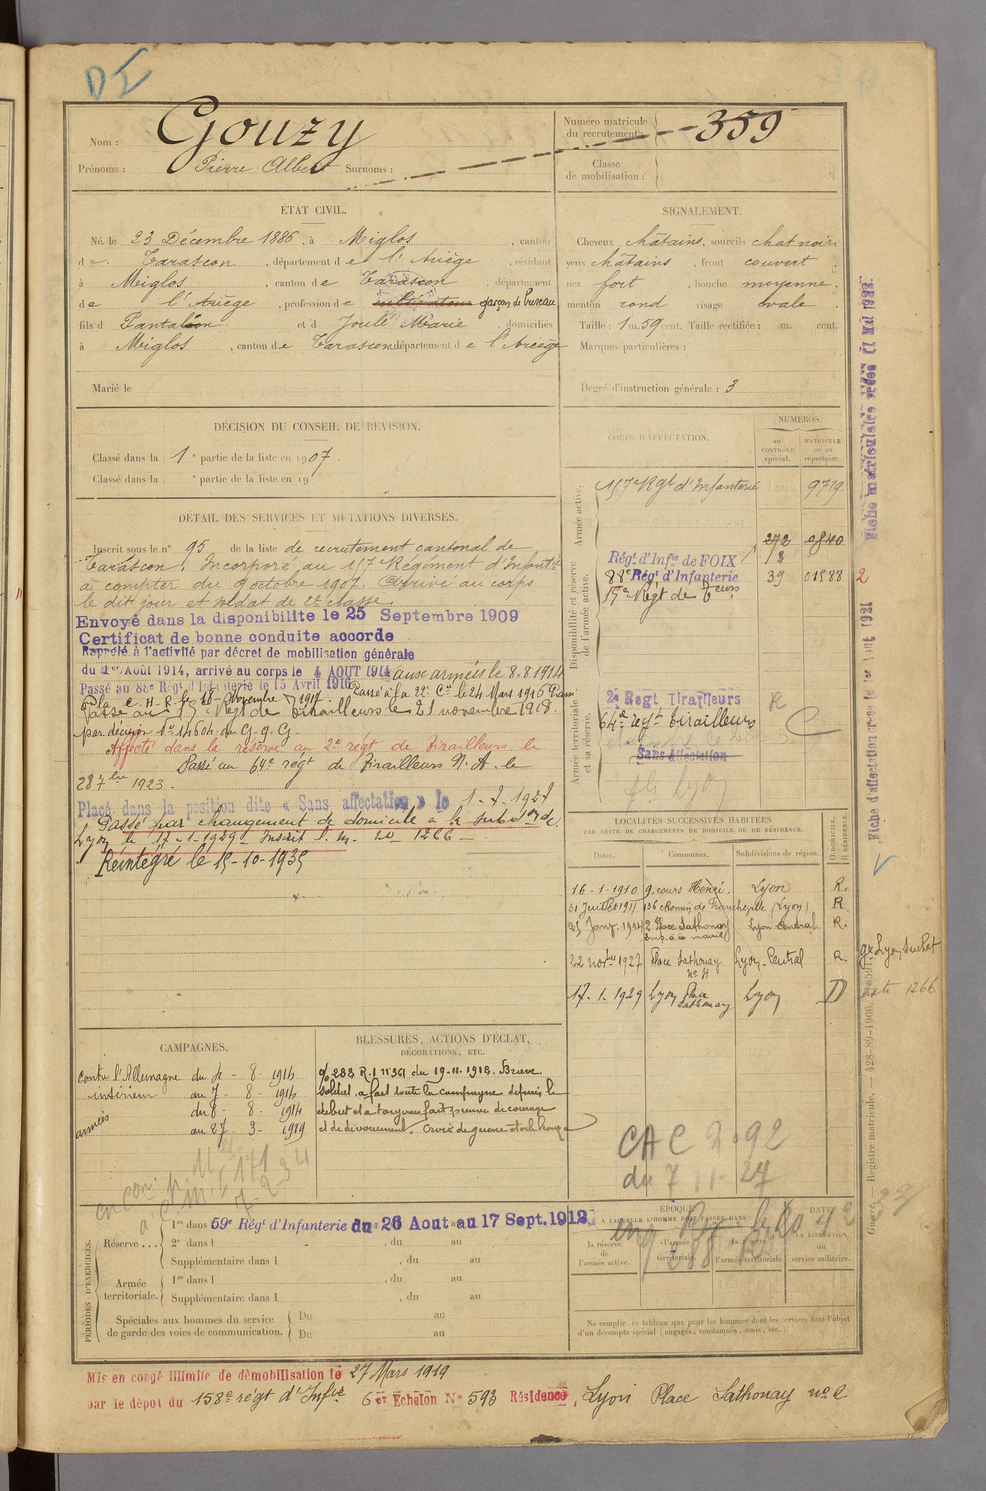 DI
Nom : Gouzy
Prénoms : Pierre Albert Surnoms :
Numéro matricule du recrutement : 359
Classe de mobilisation :
ÉTAT CIVIL.
Né le 23 Décembre 1886, à Miglos, canton
de Tarascon, département de l'Ariège, résidant
à Miglos, canton de Tarascon, département
de l'Ariège, profession de cultivateur garçon de bureau
fils d Pantaléon et d Joulé Marie, domiciliés
à Miglos, canton de Tarascon département de l'Ariège
Marié le
SIGNALEMENT.
Cheveux châtains, sourcils chat noir
yeux châtains, front couvert
nez fort, bouche moyenne
menton rond visage ovale
Taille : 1 m. 59 cent. Taille rectifiée : m. cent.
Marques particulières :
Degré d'instruction générale : 3
DÉCISION DU CONSEIL DE RÉVISION.
Classé dans la 1e partie de la liste en 1907.
Classé dans la e partie de la liste en 19
DÉTAIL DES SERVICES ET MUTATIONS DIVERSES.
Inscrit sous le n° 95 de la liste de recrutement cantonal de
Tarascon. Incorporé au 157 Régiment d'Infanterie
à compter du 9 octobre 1907. Arrivé au corps
le dit jour et soldat de 2e classe.
Envoyé dans la disponibilité le 25 Septembre 1909
Certificat de bonne conduite accordé
Rappelé à l'activité par décret de mobilisation générale
du 1er Août 1914, arrivé au corps le 4 AOUT 1914 aux armées le 8.8.1914
Passé au 88e Régt d'Infanterie le 15 Avril 1916 Passé à la 22e Cie le 24 Mars 1916 Passé
à la C.H.R. le 16 Novembre 1917.
Passé au 15e Régt de tirailleurs le 21 novembre 1918.
par décision N° 14604 du G.Q.G.
Affecté dans la réserve au 2e regt de Tirailleurs le
Passé au 64e regt de Tirailleurs N. A. le
28 7bre 1923.
Placé dans la position dite « Sans affectation » le 1-7-1927
Passé par changement de domicile à la subdon de
Lyon le 17-1-1929 Inscrit l. m. no 1266
Réintégré le 15-10-1935
CORPS D'AFFECTATION.
NUMÉROS
au CONTRÔLE spécial.
MATRICULE ou au répertoire.
Armée active.
157e Rgt d'Infanterie 9719
Disponibilité et réserve de l'armée active.
272 0840
Régt d'Infie de FOIX 18
88e Régt d'Infanterie 39 01588 2
15e Régt de Teurs
Armée territoriale et sa réserve.
2e Regt Tirailleurs R
64e regt tirailleurs C
Sans Affectation
Lyon
LOCALITÉS SUCCESSIVES HABITÉES
PAR SUITE DE CHANGEMENTS DE DOMICILE OU DE RÉSIDENCE.
Dates. Communes. Subdivisions de région. D. DOMICILE. R. RÉSIDENCE.
16-1-1910 9 cours Henri. Lyon R.
31 Juillet 1911 136 chemin de Francheville (Lyon) R
25 Janv. 1914 2 Place Sathonay Lyon Central R.
Emp. à la mairie
22 novbre 1927 Place Sathonay Lyon-Central R
17-1-1929 Lyon Place Sathonay Lyon D
CAMPAGNES.
contre l'Allemagne du 4 - 8 - 1914
intérieur au 7 - 8 - 1914
armées du 8 - 8 - 1914
au 27 - 3 - 1919
BLESSURES, ACTIONS D'ÉCLAT,
DÉCORATIONS, ETC.
o/ 283 R.I 11361 du 19-11-1918. Brave
soldat, a fait toute la campagne depuis le
début et a toujours fait preuve de courage
et de dévouement. Croix de guerre etoile bronze
CAC 2.92
du 7 11-27
PÉRIODES D'EXERCICES.
Réserve.... 1re dans l 59e Régt d'Infanterie du 26 Aout au 17 Sept. 1912
2e dans l , du au
Supplémentaire dans l , du au
Armée territoriale. 1re dans l , du au
Supplémentaire dans l , du au
Spéciales aux hommes du service de garde des voies de communication. Du au
Du au
ÉPOQUE
À LAQUELLE L'HOMME DOIT PASSER DANS :
la réserve de l'armée active.
l'armée territoriale.
la réserve de l'armée territoriale
DATE DE LA LIBÉRATION du service militaire.
Ne remplir ce tableau que pour les hommes dont les services font l'objet
d'un décompte spécial (engagés, condamnés, omis, etc.)
Mis en congé illimité de démobilisation le 27 Mars 1919
par le dépôt du 158e régt d'Infie 6e Échelon N° 593 Résidence, Lyon Place Sathonay no 2
Guerre. — Registre matricule. — 428-89-1906.